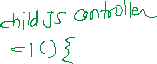 child JS controller
= 1 () {